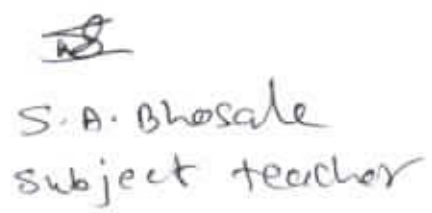 S. A. Bhosale
Subject teacher